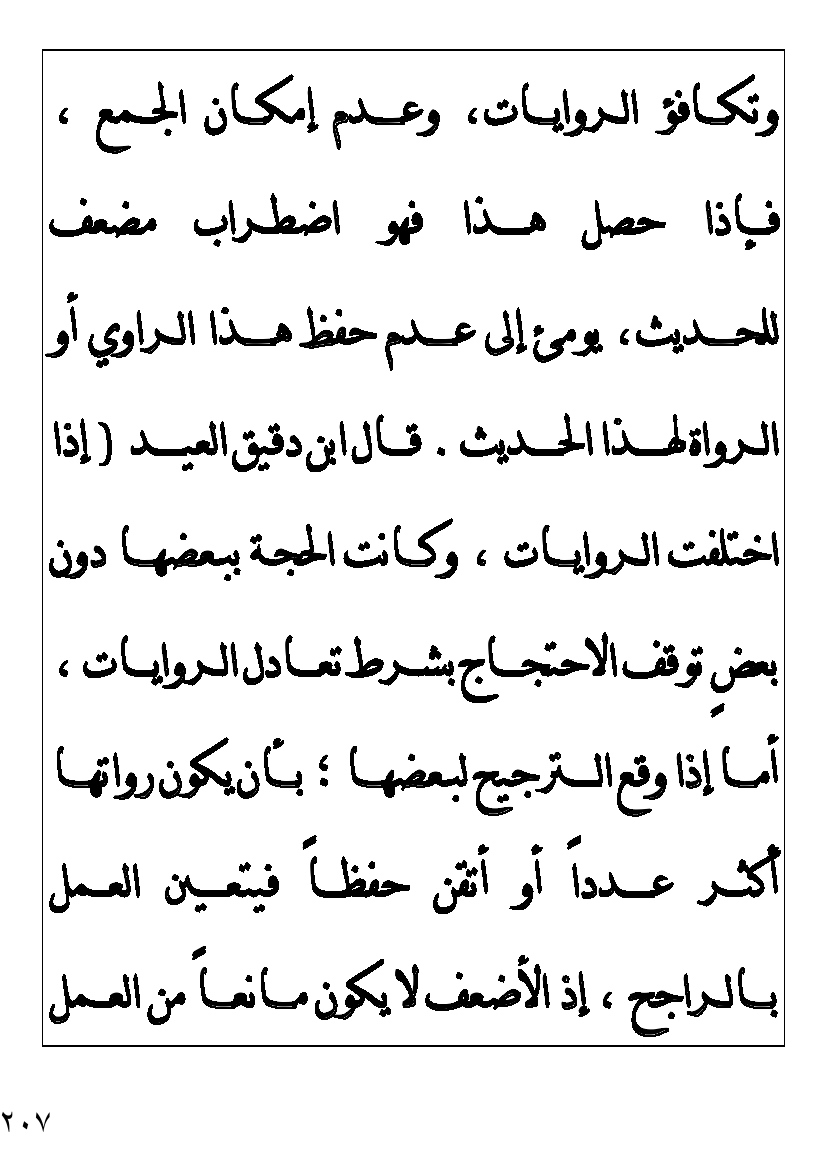 وتكافؤ الروايات، وعدم إمكان الجمع ،
فإذا حصل هذا فهو اضطراب مضعف
للحديث، يومئ إلى عدم حفظ هذا الراوي أو
الرواة لهذا الحديث . قال ابن دقيق العيد ( إذا
اختلفت الروايات ، وكانت الحجة ببعضها دون
بعضٍ توقف الاحتجاج بشرط تعادل الروايات ،
أما إذا وقع الترجيح لبعضها ؛ بأن يكون رواتها
أكثر عدداً أو أتقن حفظاً فيتعين العمل
بالراجح ، إذ الأضعف لا يكون مانعاً من العمل
٢٠٧